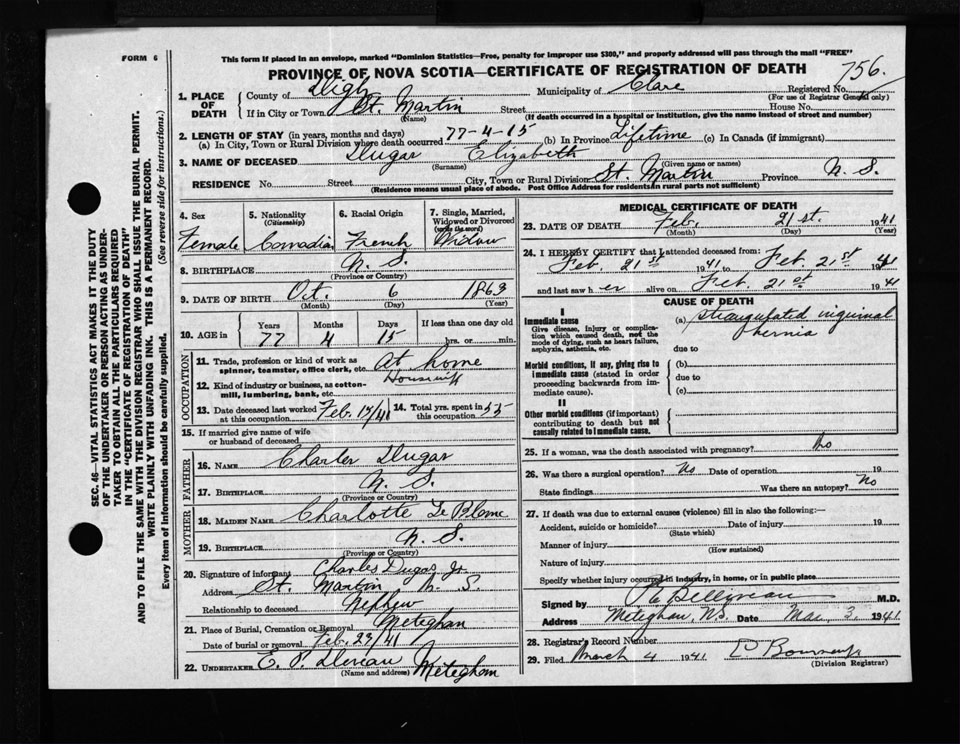 FORM 6
This form if placed in an envelope, marked "Dominion Statistics—Free, penalty for improper use $300," and properly addressed will pass through the mail "FREE"
PROVINCE OF NOVA SCOTIA—CERTIFICATE OF REGISTRATION OF DEATH
756.
1. PLACE OF DEATH
County of Digby Municipality of Clare Registered No.
(For use of Registrar General only)
If in City or Town St. Martin Street House No.
(Name) (If death occurred in a hospital or institution, give the name instead of street and number)
2. LENGTH OF STAY (in years, months and days)
(a) In City, Town or Rural Division where death occurred 77-4-15 (b) In Province Lifetime (c) In Canada (if immigrant)
3. NAME OF DECEASED Dugas Elizabeth
(Surname) (Given name or names)
RESIDENCE No. Street City, Town or Rural Division St. Martin Province N. S.
(Residence means usual place of abode. Post Office Address for residents in rural parts not sufficient)
4. Sex Female
5. Nationality (Citizenship) Canadian
6. Racial Origin French
7. Single, Married, Widowed or Divorced (write the word) Widow
8. BIRTHPLACE N. S.
(Province or Country)
9. DATE OF BIRTH Oct. 6 1863
(Month) (Day) (Year)
10. AGE in Years 77 Months 4 Days 15 If less than one day old hrs. or min.
OCCUPATION
11. Trade, profession or kind of work as spinner, teamster, office clerk, etc. At home
12. Kind of industry or business, as cotton-mill, lumbering, bank, etc. Housewife
13. Date deceased last worked at this occupation Feb. 17/41
14. Total yrs. spent in this occupation 55
15. If married give name of wife or husband of deceased
FATHER
16. NAME Charles Dugas
17. BIRTHPLACE N. S.
(Province or Country)
MOTHER
18. MAIDEN NAME Charlotte Le Blanc
19. BIRTHPLACE N. S.
(Province or Country)
20. Signature of informant Charles Dugas Jr.
Address St. Martin N. S.
Relationship to deceased Nephew
21. Place of Burial, Cremation or Removal Meteghan
Date of burial or removal Feb. 23/41
22. UNDERTAKER E. P. Meteghan
(Name and address)
MEDICAL CERTIFICATE OF DEATH
23. DATE OF DEATH Feb. 21st. 1941
(Month) (Day) (Year)
24. I HEREBY CERTIFY that I attended deceased from:
Feb. 21st 1941 to Feb. 21st 1941
and last saw her alive on Feb 21st 1941
CAUSE OF DEATH
I
Immediate cause
Give disease, injury or complication which caused death, not the mode of dying, such as heart failure, asphyxia, asthenia, etc.
(a) strangulated inguinal hernia
due to
Morbid conditions, if any, giving rise to immediate cause (stated in order proceeding backwards from immediate cause).
(b)
due to
(c)
II
Other morbid conditions (if important) contributing to death but not causally related to immediate cause.
25. If a woman, was the death associated with pregnancy? No
26. Was there a surgical operation? No Date of operation 19
State findings Was there an autopsy? No
27. If death was due to external causes (violence) fill in also the following:—
Accident, suicide or homicide? Date of injury 19
(State which)
Manner of injury
(How sustained)
Nature of injury
Specify whether injury occurred in industry, in home, or in public place
Signed by M.D.
Address Meteghan, N.S. Date Mar. 3. 1941
28. Registrar's Record Number
29. Filed March 4 1941
(Division Registrar)
SEC. 46—VITAL STATISTICS ACT MAKES IT THE DUTY
OF THE UNDERTAKER OR PERSON ACTING AS UNDER-
TAKER TO OBTAIN ALL THE PARTICULARS REQUIRED
IN THE "CERTIFICATE OF REGISTRATION OF DEATH"
AND TO FILE SAME WITH THE DIVISION REGISTRAR WHO SHALL ISSUE THE BURIAL PERMIT.
WRITE PLAINLY WITH UNFADING INK. THIS IS A PERMANENT RECORD.
Every item of information should be carefully supplied. (See reverse side for instructions.)